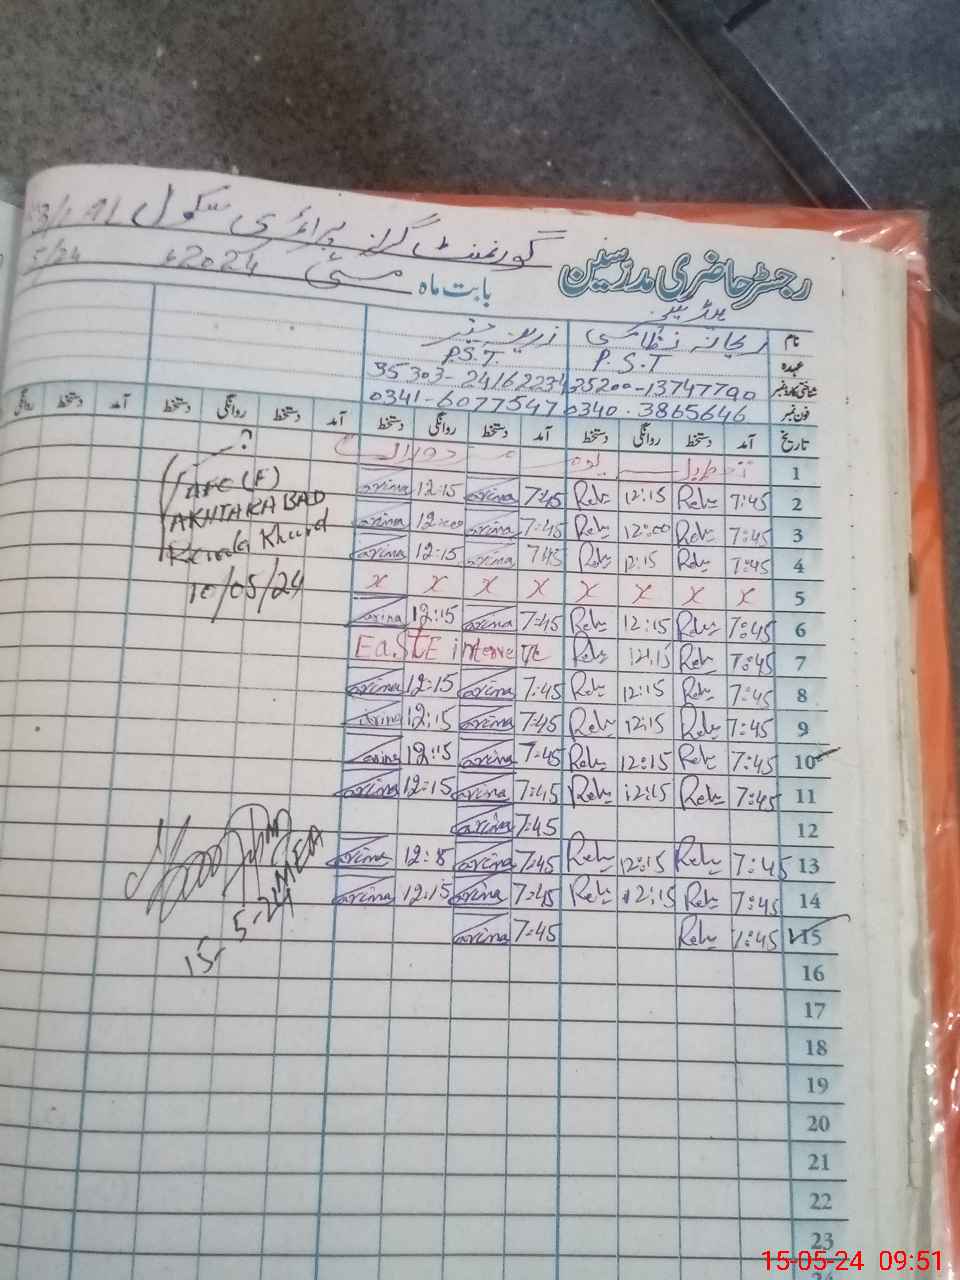 گورنمنٹ گرلز پرائمری سکول
رجسٹر حاضری مدرسین
بابت ماہ مئی 2024
5/24
نام ریحانہ نظامی زرینہ
عہدہ P.S.T P.S.T.
شناختی کارڈ نمبر 35200-13747790 35303-24162234
فون نمبر 0340.3865646 0341-6077547
تاریخ آمد دستخط روانگی دستخط آمد دستخط روانگی دستخط آمد دستخط روانگی دستخط آمد دستخط روانگی
1 تعطیل یوم
2 7:45 Reh 12:15 Reh 7:45 Zarina 12:15 Zarina
3 7:45 Reh 12:00 Reh 7:45 Zarina 12:00 Zarina
4 7:45 Reh 12:15 Reh 7:45 Zarina 12:15 Zarina
5 x x x x x x x x
6 7:45 Reh 12:15 Reh 7:45 Zarina 12:15 Zarina
7 7:45 Reh 12:15 Reh EaStE
8 7:45 Reh 12:15 Reh 7:45 Zarina 12:15 Zarina
9 7:45 Reh 12:15 Reh 7:45 Zarina 12:15 Zarina
10 7:45 Reh 12:15 Reh 7:45 Zarina 12:15 Zarina
11 7:45 Reh 12:15 Reh 7:45 Zarina 12:15 Zarina
12 7:45 Zarina
13 7:45 Reh 12:15 Reh 7:45 Zarina 12:15 Zarina
14 7:45 Reh 12:15 Reh 7:45 Zarina 12:15 Zarina
15 7:45 Reh 7:45 Zarina
16
17
18
19
20
21
22
23
24
?
AEC (F)
AKHTARABAD
Renala Khurd
10/05/24
MEA
15-5-24
15-05-24 09:51